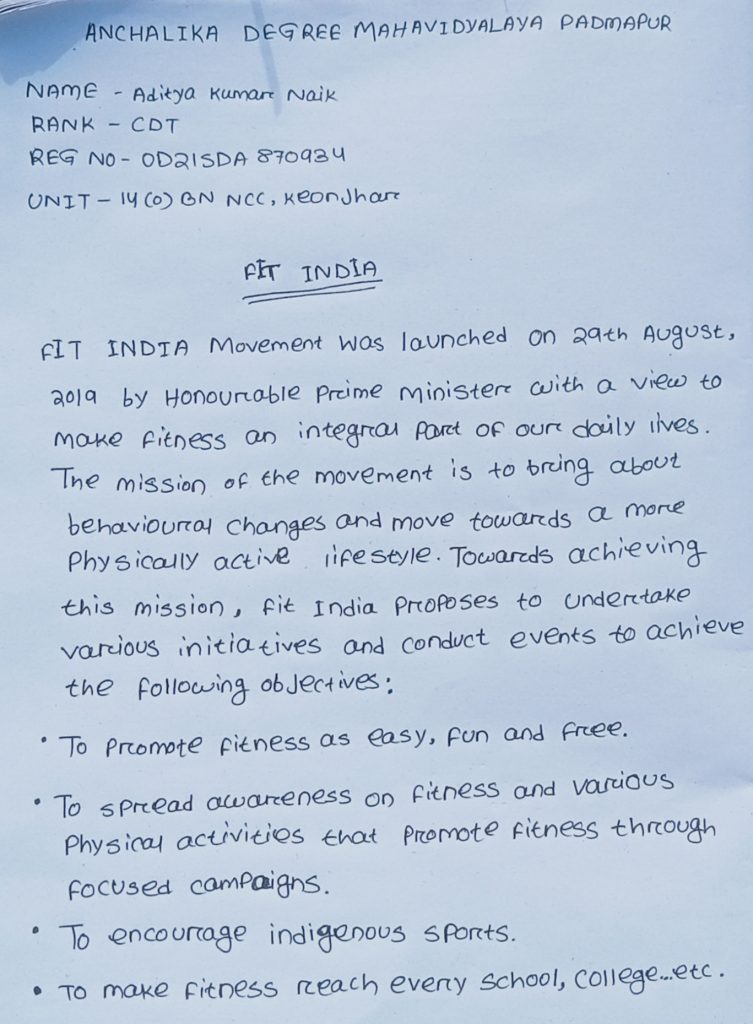 ANCHALIKA DEGREE MAHAVIDYALAYA PADMAPUR
NAME - Aditya Kumar Naik
RANK - CDT
REG NO - OD21SDA 870934
UNIT - 14 (O) BN NCC, Keonjhar
FIT INDIA
FIT INDIA Movement was launched on 29th August,
2019 by Honourable Prime Minister with a view to
make fitness an integral part of our daily lives.
The mission of the movement is to bring about
behavioural changes and move towards a more
Physically active lifestyle. Towards achieving
this mission, Fit India Proposes to undertake
various initiatives and conduct events to achieve
the following objectives:
• To Promote fitness as easy, fun and free.
• To spread awareness on fitness and various
Physical activities that promote fitness through
focused campaigns.
• To encourage indigenous sports.
• To make fitness reach every school, college...etc.